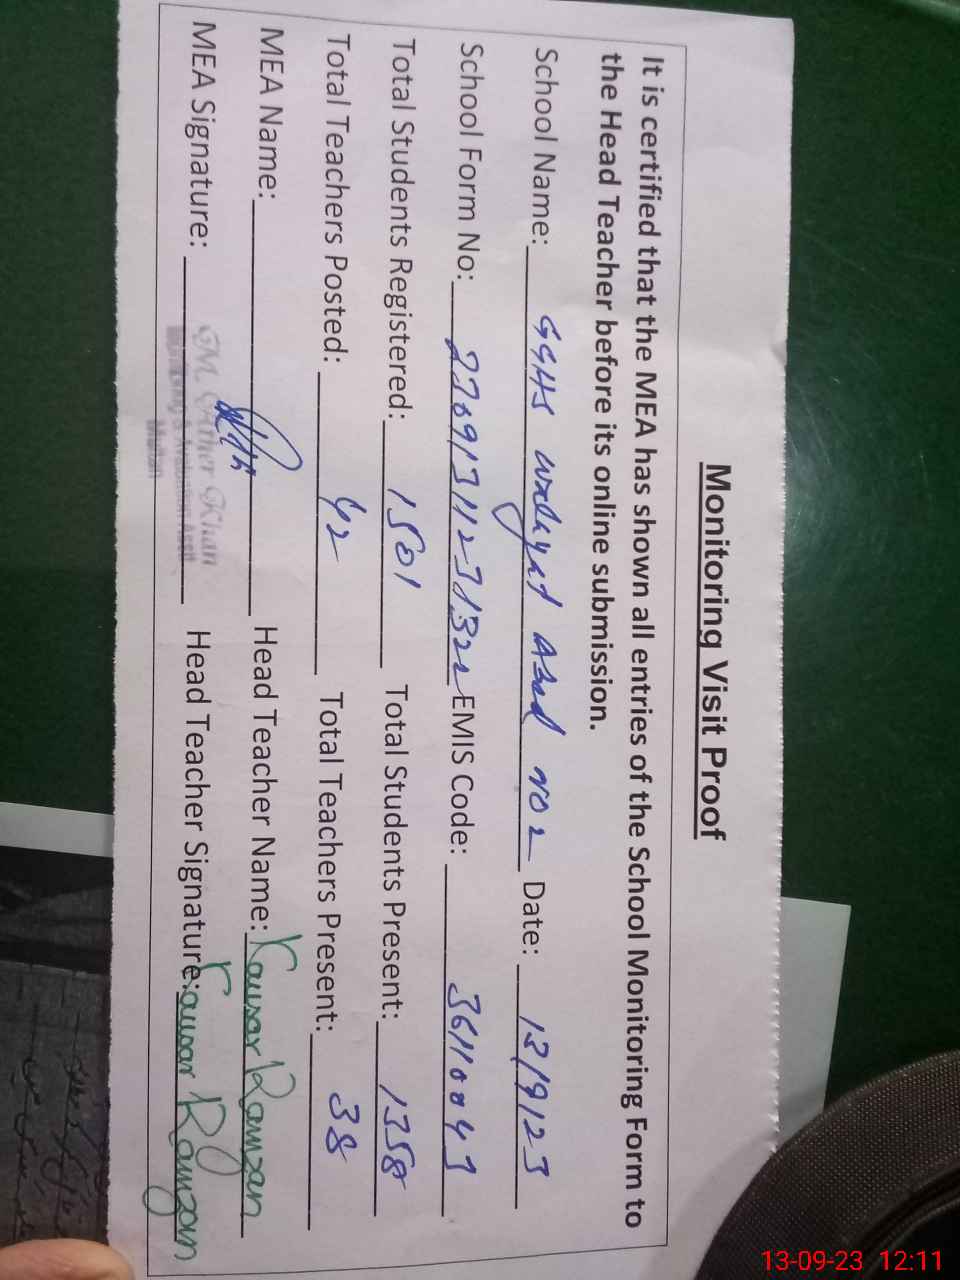 Monitoring Visit Proof
It is certified that the MEA has shown all entries of the School Monitoring Form to
the Head Teacher before its online submission.
School Name: GGHS wrlayat Abad no 2 Date: 13/9/23
School Form No: EMIS Code: 36110043
Total Students Registered: 1501 Total Students Present: 1358
Total Teachers Posted: 42 Total Teachers Present: 38
MEA Name: Head Teacher Name: Kausar Ramzan
MEA Signature: Head Teacher Signature: Kausar Ramzan
Khan
Multan
13-09-23 12:11